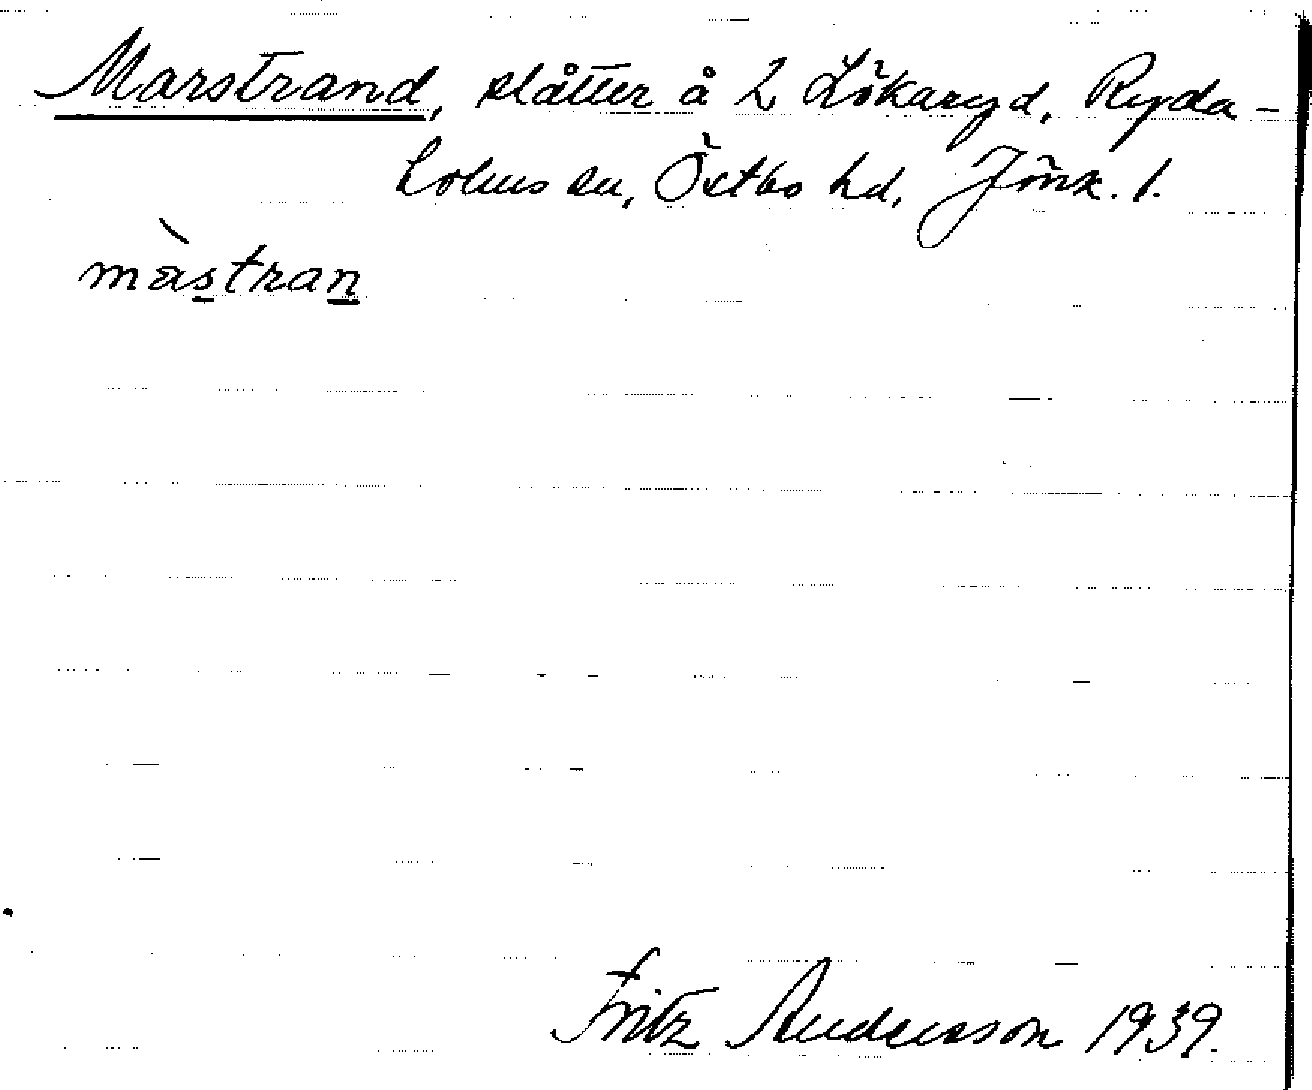 Marstrand, slåtter å 2 Lökaryd, Ryda-
holms sn, Östbo hd, Jönk. l.
màstran
Fritz Andersson 1939.